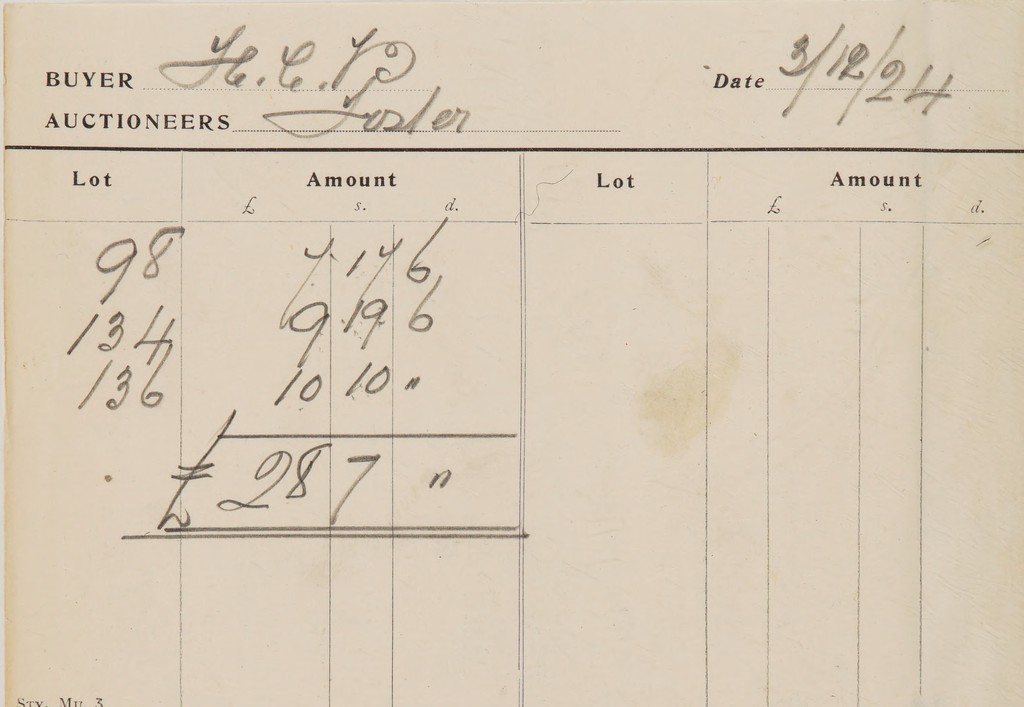 BUYER H. C. P
Date 3/12/24
AUCTIONEERS Foster
Lot Amount Lot Amount
£ s. d. £ s. d.
98 7 17 6
134 9 19 6
136 10 10 "
£ 28 7 "
STY. MU. 3